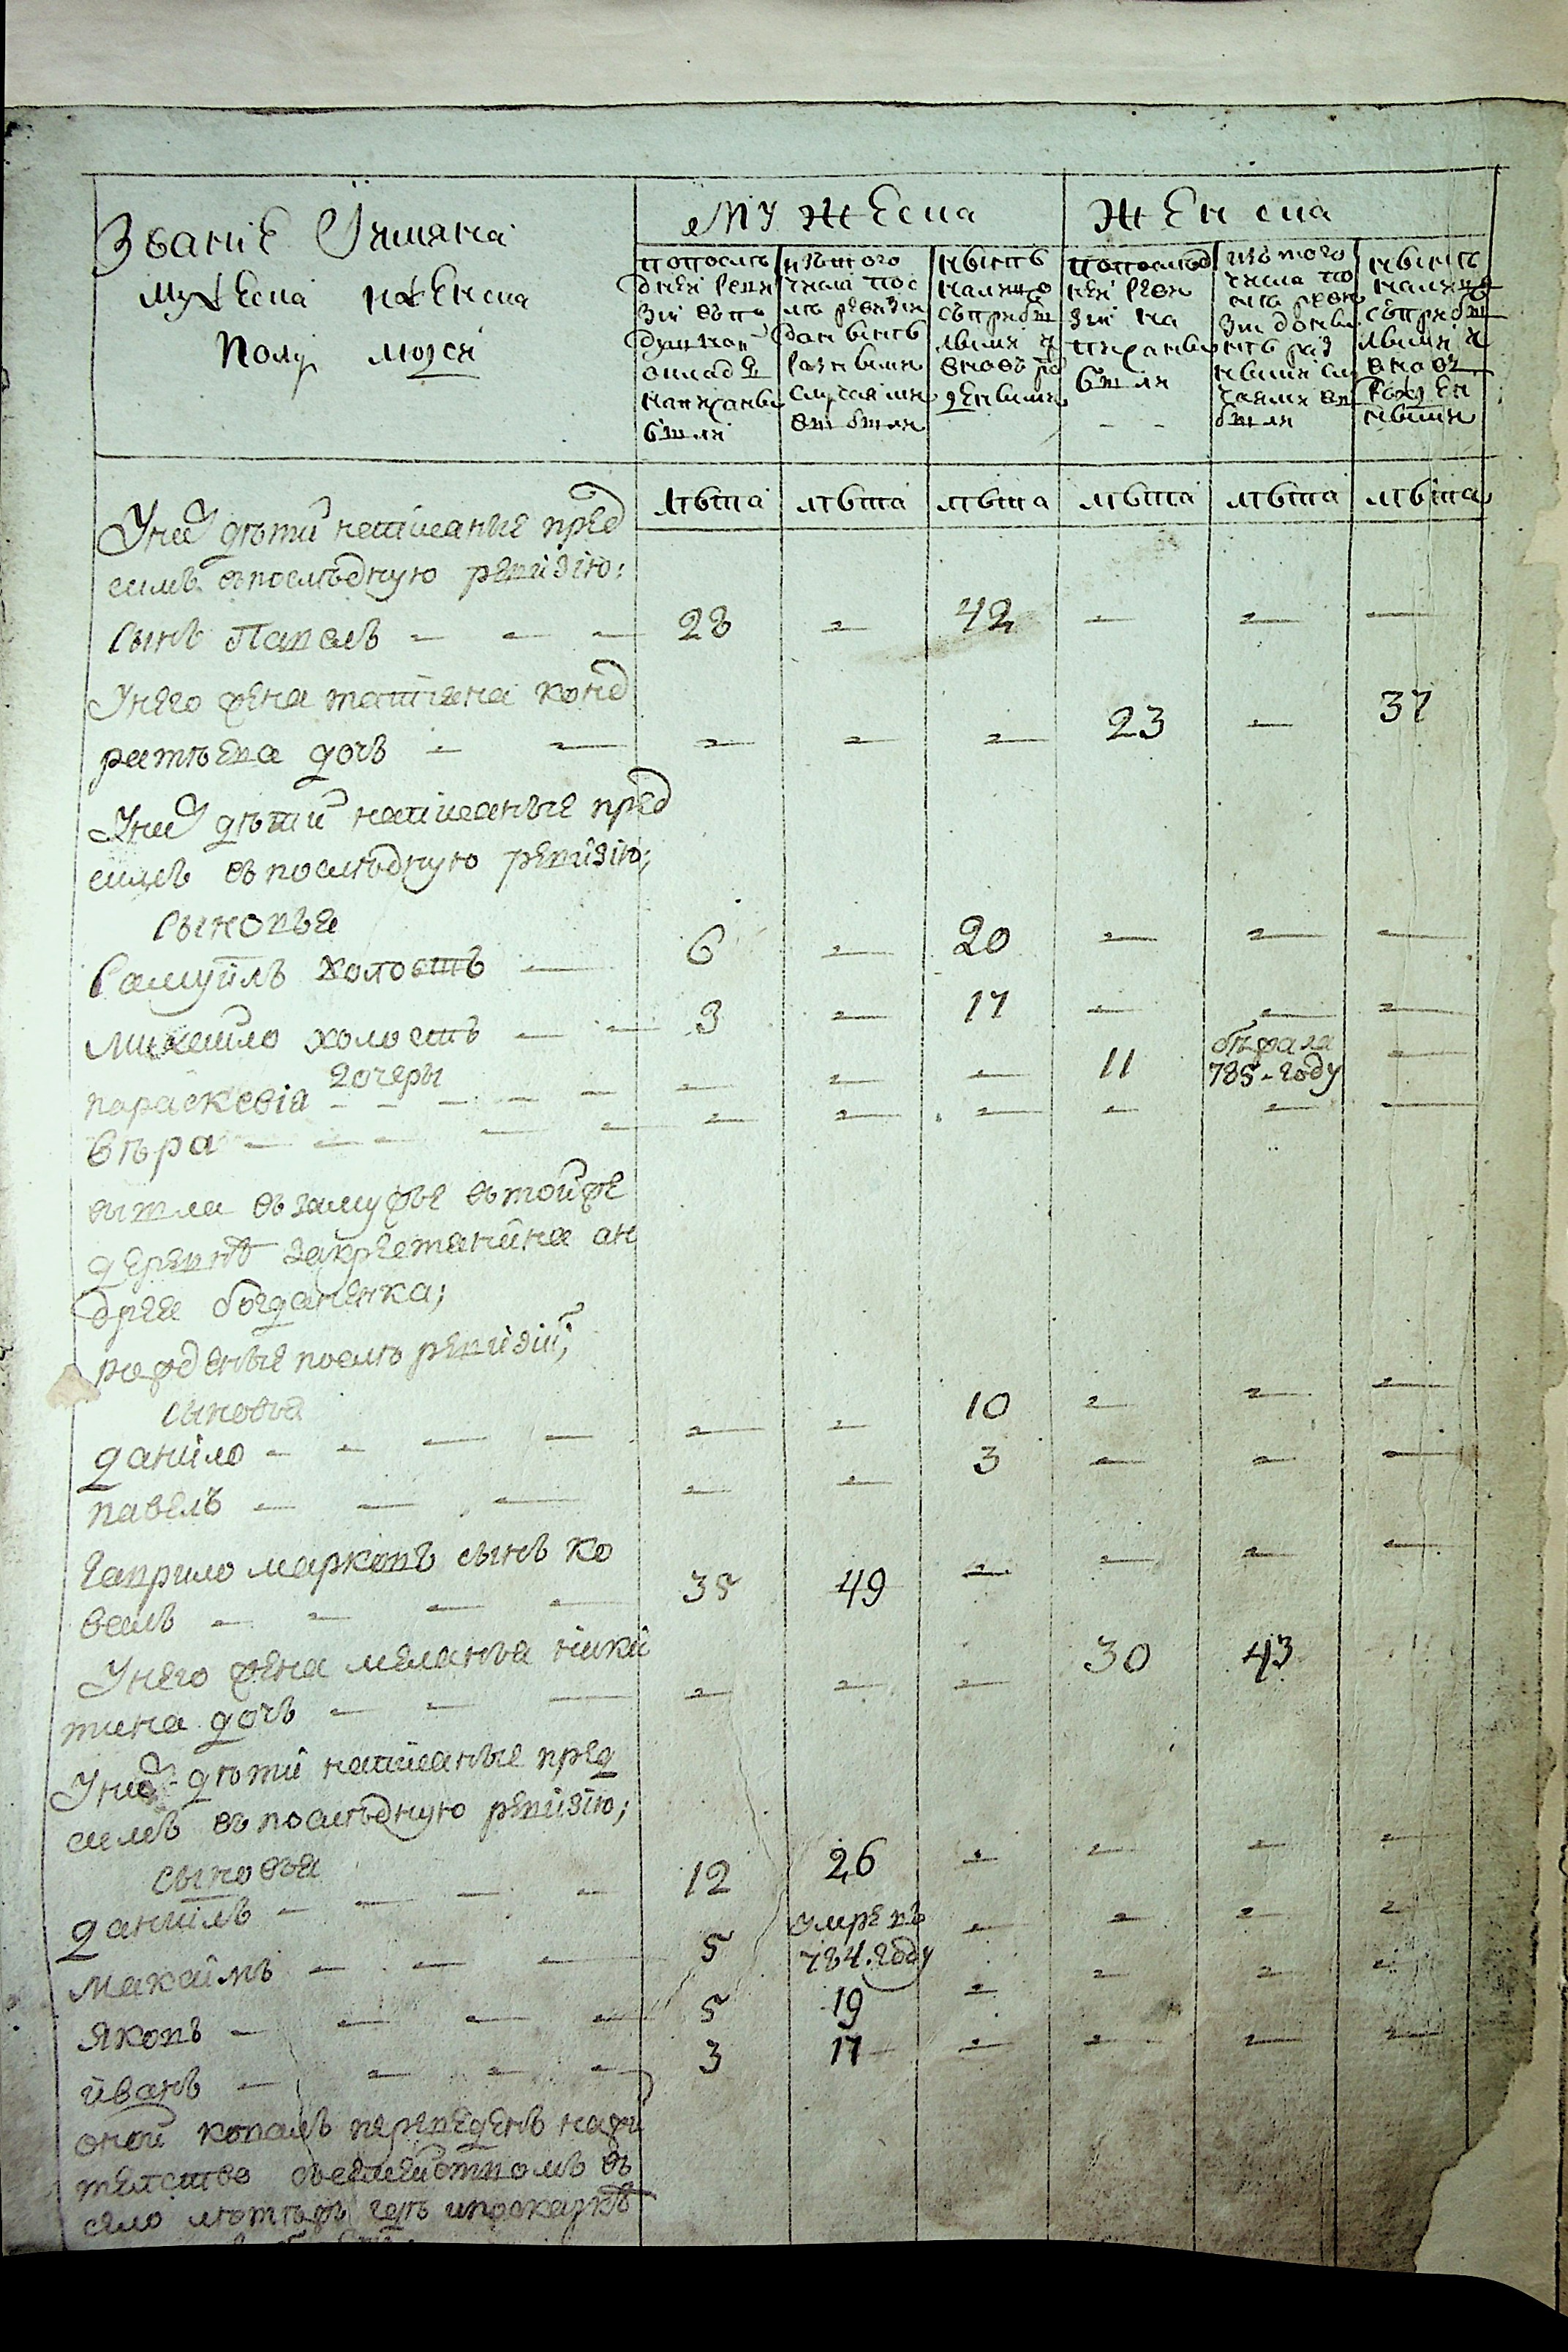 Званіе Имяна
мужеска и женска
полу людей
мужеска
женска
попослѣ
дней реви
зіи въ по
душной
окладѣ
написанны
были
изътого
числа пос
лѣ ревизіи
донынѣ
разными
случаями
выбыли
нынѣ
налицо
съприбы
лыми и
вновь ро
жденными
попослѣд
ней реви
зіи на
писанны
были
изъ того
числа по
слѣ реви
зіи доны
нѣ раз
ными слу
чаями вы
были
нынѣ
налицо
съприбы
лыми и
вновь
рожден
ными
лѣта лѣта лѣта лѣта лѣта лѣта
Уней дѣти написаные пред
симъ впослѣдную ревизію:
сынъ Павелъ - - - 28 - 42 - - -
Унего жена татіана конд
ратѣева дочь - - - - - 23 - 37
Уней дѣти написаные пред
симъ въ послѣдную ревизію;
сыновья
Самуйлъ холостъ - 6 - 20 - - -
михаило холостъ - - 3 - 17 - - -
дочеры
параскевіа - - - - - - - - 11 бѣжала 785-году -
вѣра - - - - - - - - - - -
вышла въ замужье въ тойже
деревнѣ закрестянина ан
дрея богданенка;
рожденые послѣ ревизіи;
сыновья
данило - - - - - - 10 - - -
павелъ - - - - - 3 - - -
гаврило марковъ сынъ ко
валь - - - - 35 49 - - - -
Унего жена меланья ники
тина дочь - - - - - - 30 43
Уней дѣти написаные пред
симъ въ послѣдную ревизію;
сыновья
данилъ - - - - 12 26 - - - -
максимъ - - - 5 умревъ 784.году - - - -
яковъ - - - - 5 19 - - - -
иванъ - - - - 3 17 - - - -
оной коваль переведенъ нажи
телство съсемействомъ въ
село лютѣжъ гдѣ ипосказкѣ